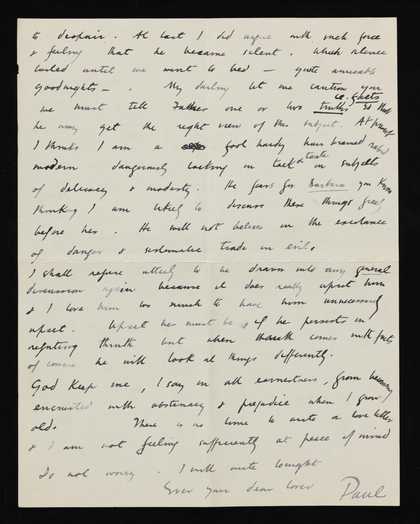 to despair. At last I did argue with such force
& feeling that he became silent. Which silence
lasted until we went to bed — quite amicable
goodnights — . My darling let me caution you
i.e. facts
we must tell Father one or two truths so that
he may get the right view of this subject. At present
he thinks I am a fool hardy hair brained
modern dangerously lacking in tact & taste on subjects
of delicacy & modesty. He fears for Barbara you know
thinking I am likely to discuss these things freely
before her. He will not believe in the existence
of danger & systematic trade in evil.
I shall refuse utterly to be drawn into any general
discussion again because it does really upset him
& I love him too much to have him unnecessarily
upset. Upset he must be if he persists in
refuting truth but when truth comes with facts
of course he will look at things differently.
God keep me, I say in all earnestness, from becoming
encrusted with obstinacy & prejudice when I grow
old. There is no time to write a love letter
& I am not feeling sufficiently at peace of mind
Do not worry. I will write tonight
Ever your dear lover Paul